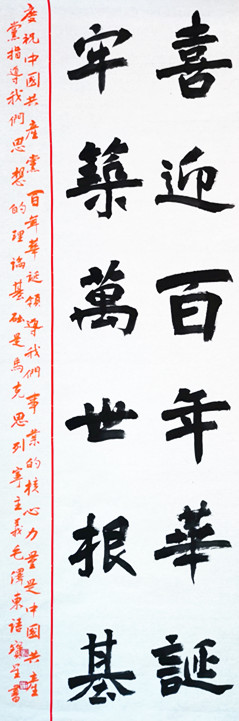 喜迎百年華誕
牢築萬世根基
慶祝中國共産黨百年華誕領導我們事業的核心力量是中國共産
黨指導我們思想的理論基础是馬克思列寧主義毛澤東語書